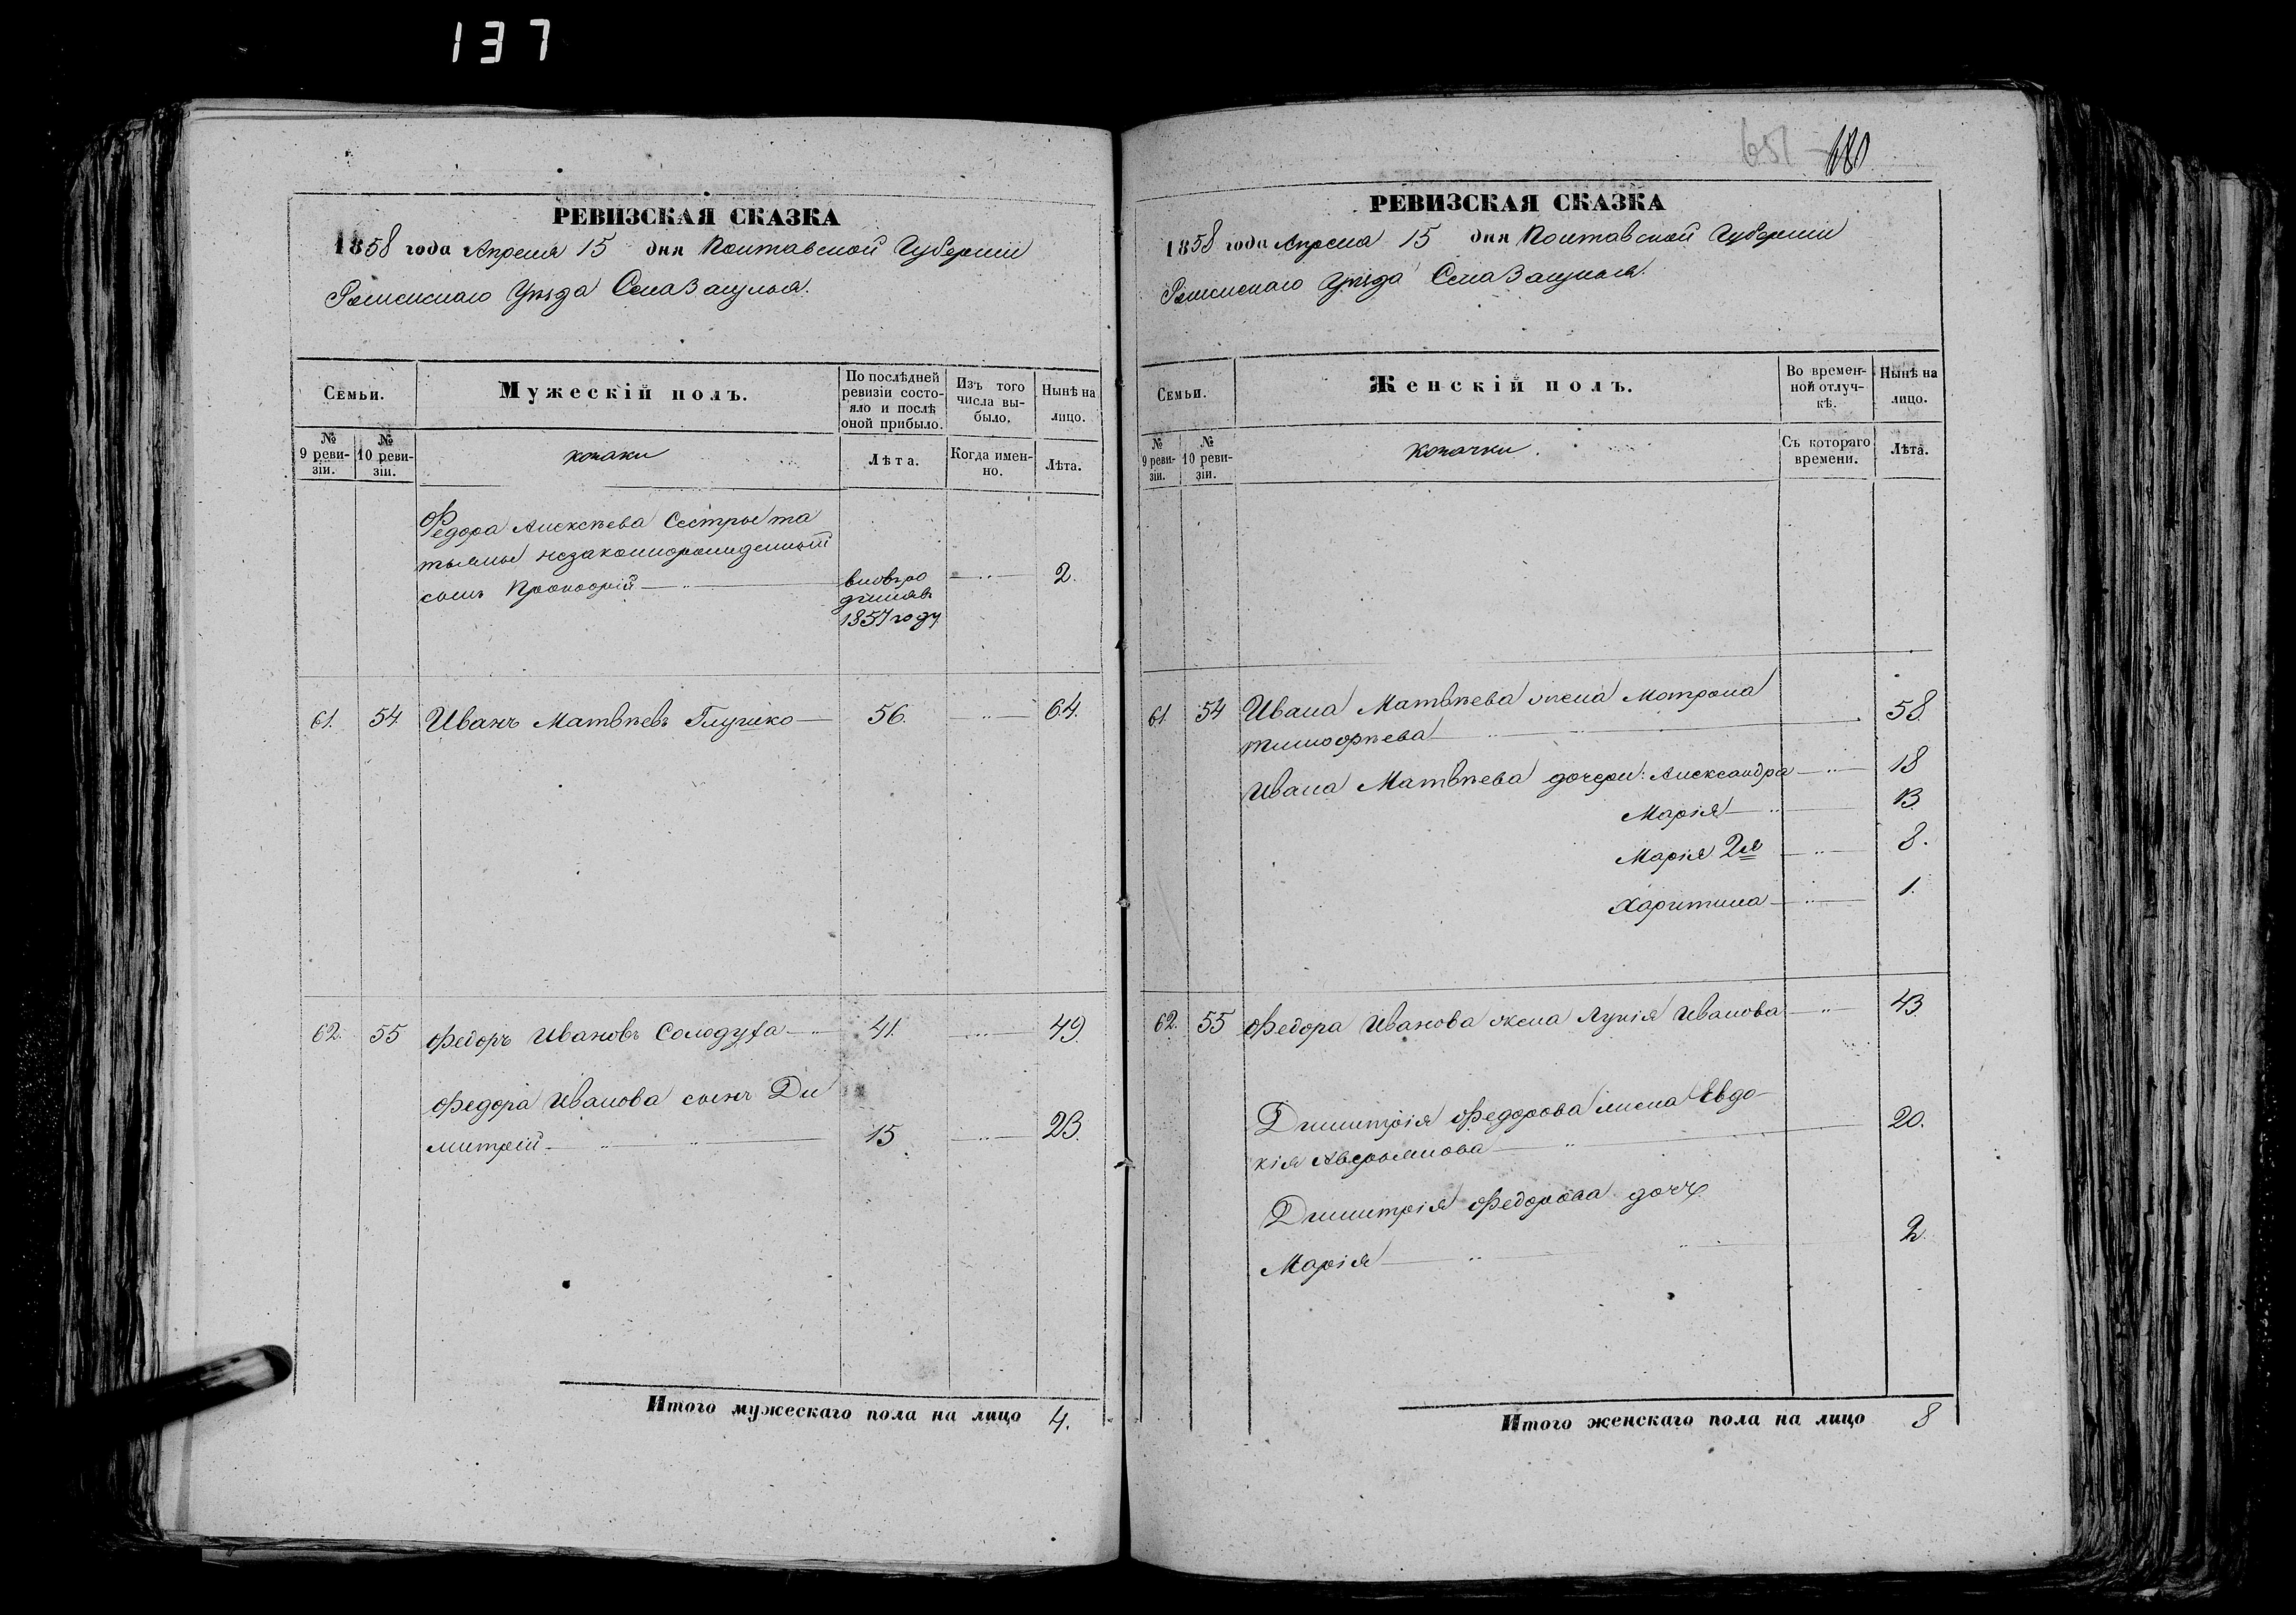 137
РЕВИЗСКАЯ СКАЗКА
1858 года Апреля 15 дня Полтавской Губерніи
Роменскаго Уѣзда Села Засулья.
Семьи.
Мужескій полъ.
По послѣдней ревизіи состояло и послѣ оной прибыло.
Изъ того числа выбыло.
Нынѣ на лицо.
№ 9 ревизіи.
№ 10 ревизіи.
козаки
Лѣта.
Когда именно.
Лѣта.
Федора Алексѣева Сестры та
тьяны незаконнорожденный
сынъ Прокофій 2.
вновьро
1857 году
61. 54. Иванъ Матвѣевъ Глушко 56. 64.
62. 55 Федоръ Ивановъ Солодуха 41. 49.
Федора Иванова сынъ Ди
митрій 15. 23.
Итого мужескаго пола на лицо 4.
651 680
РЕВИЗСКАЯ СКАЗКА
1858 года Апреля 15 дня Полтавской Губерніи
Роменскаго Уѣзда Села Засулья.
Семьи.
Женскій полъ.
Во временной отлучкѣ.
Нынѣ на лицо.
№ 9 ревизіи.
№ 10 ревизіи.
Козачки.
Съ котораго времени.
Лѣта.
61. 54 Ивана Матвѣева жена Мотрона
тимофѣева 58.
Ивана Матвѣева дочери: Александра 18
Марія 13.
Марія 2я 8.
Харитина 1.
62. 55 Федора Иванова жена Лукія Иванова 43.
Димитрія Федорова жена Евдо-
кія Аверьянова 20.
Димитрія Федорова дочь
Марія 2.
Итого женскаго пола на лицо 8